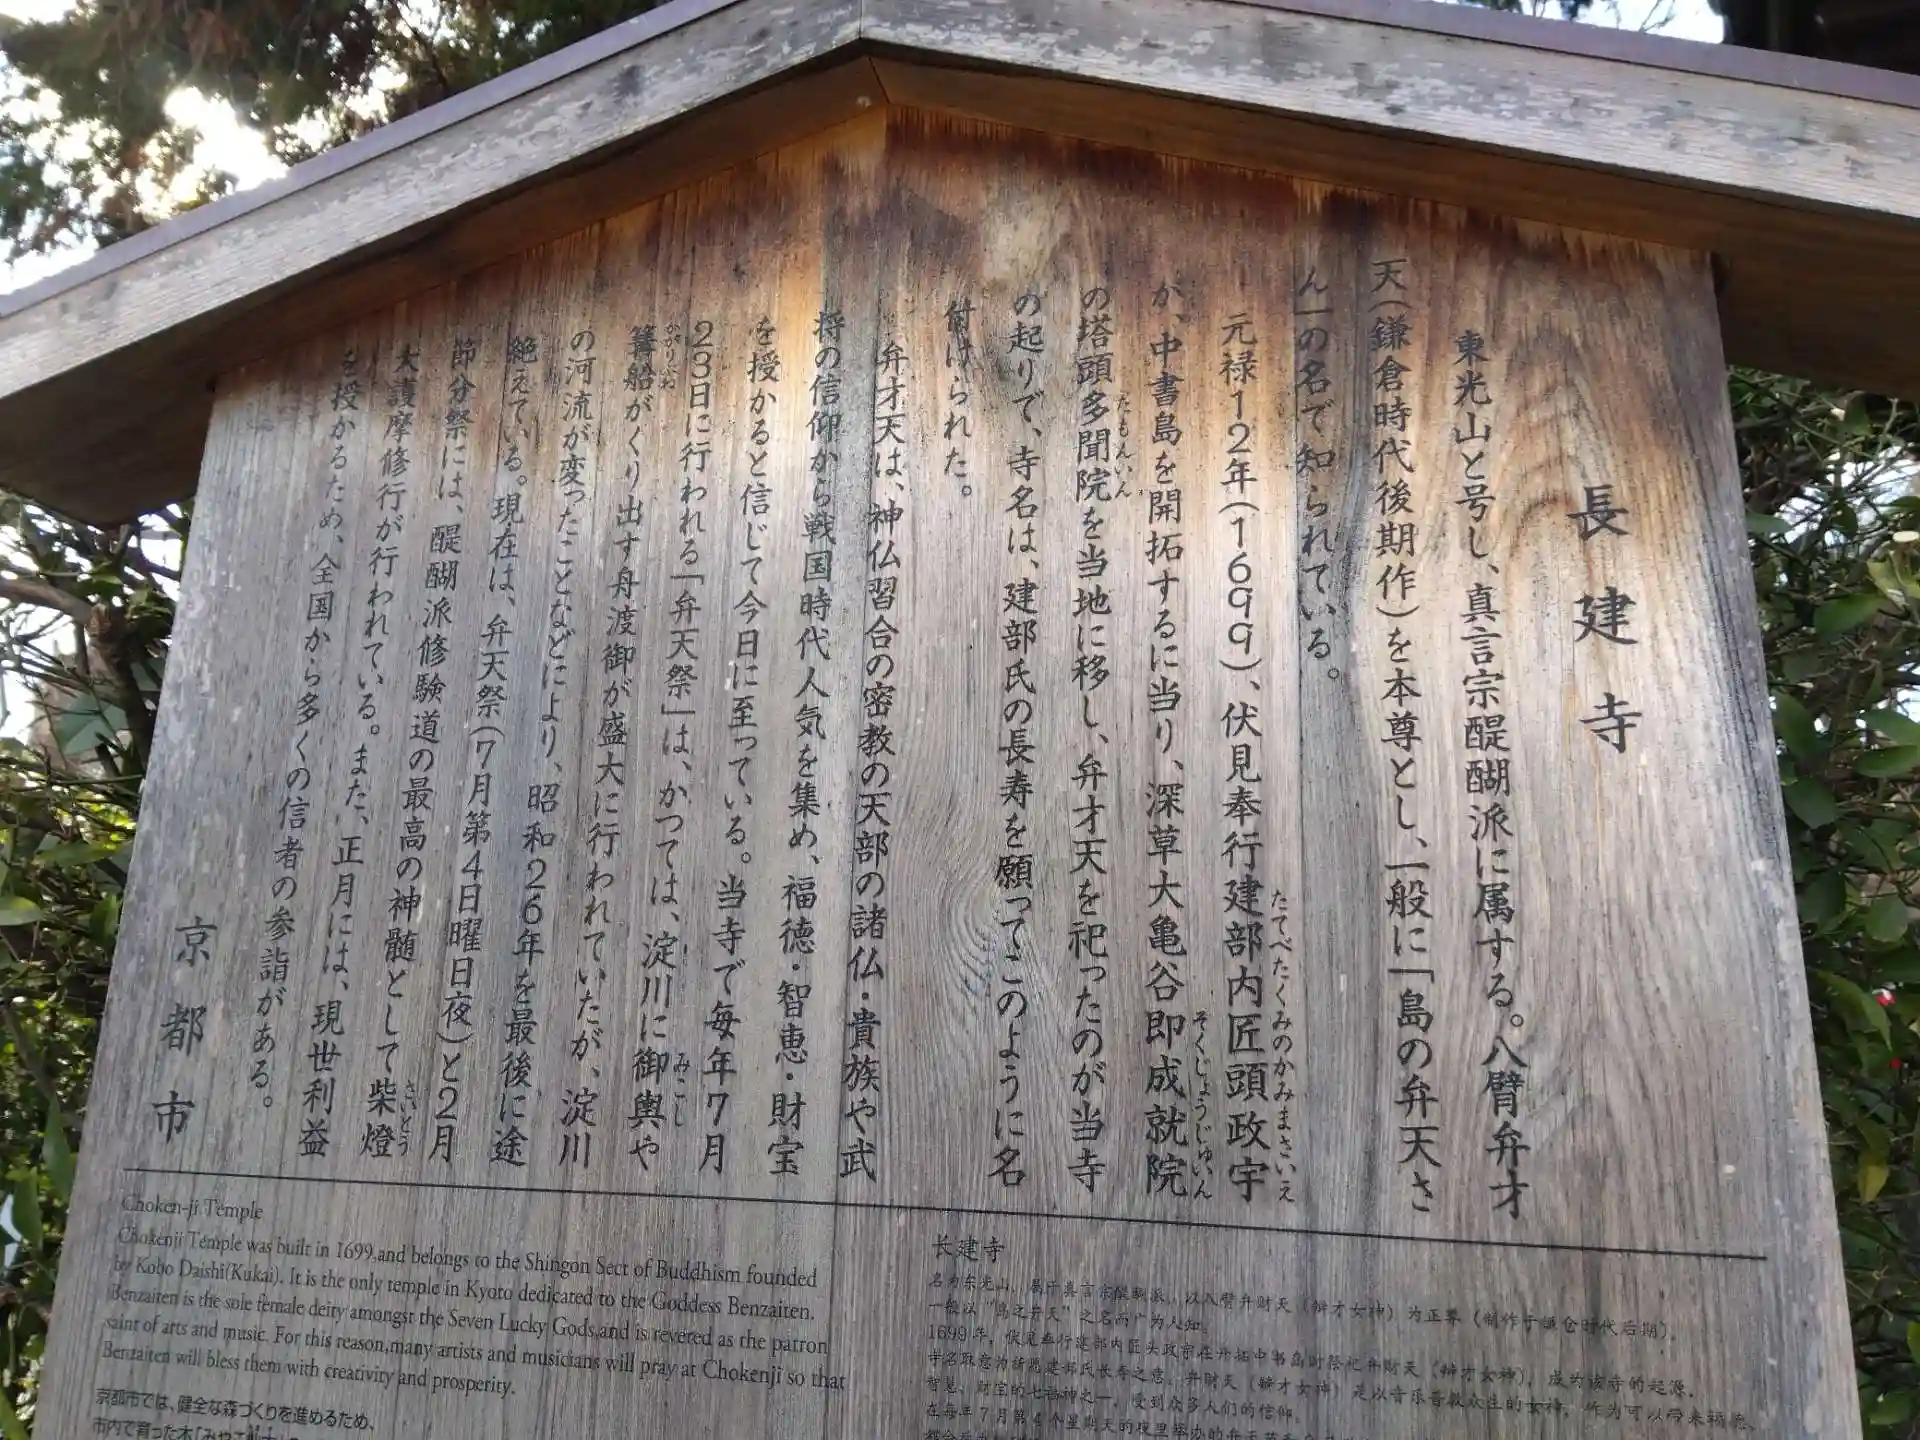 長建寺
東光山と号し、真言宗醍醐派に属する。八臂弁才
天(鎌倉時代後期作)を本尊とし、一般に「島の弁天さ
ん」の名で知られている。
元禄12年(1699)、伏見奉行建部内匠頭政宇
たてべたくみのかみまさいえ
が、中書島を開拓するに当り、深草大亀谷即成就院
そくじょうじゅいん
の塔頭多聞院を当地に移し、弁才天を祀ったのが当寺
たもんいん
の起りで、寺名は、建部氏の長寿を願ってこのように名
付けられた。
弁才天は、神仏習合の密教の天部の諸仏・貴族や武
将の信仰から戦国時代人気を集め、福徳・智恵・財宝
を授かると信じて今日に至っている。当寺で毎年7月
23日に行われる「弁天祭」は、かつては、淀川に御輿や
みこし
篝船がくり出す舟渡御が盛大に行われていたが、淀川
かがりぶね
の河流が変ったことなどにより、昭和26年を最後に途
絶えている。現在は、弁天祭(7月第4日曜日夜)と2月
節分祭には、醍醐派修験道の最高の神髄として柴燈
さいとう
大護摩修行が行われている。また、正月には、現世利益
を授かるため、全国から多くの信者の参詣がある。
京都市
Choken-ji Temple
Chokenji Temple was built in 1699,and belongs to the Shingon Sect of Buddhism founded
by Kobo Daishi(Kukai). It is the only temple in Kyoto dedicated to the Goddess Benzaiten.
Benzaiten is the sole female deity amongst the Seven Lucky Gods,and is revered as the patron
saint of arts and music. For this reason,many artists and musicians will pray at Chokenji so that
Benzaiten will bless them with creativity and prosperity.
京都市では、健全な森づくりを進めるため、
市内で育った木「みやこ
长建寺
名为东光山，属于真言宗醍醐派，以八臂弁财天（辩才女神）为正尊（制作于镰仓时代后期），
一般以“岛之弁天”之名而广为人知。
1699年，伏见奉行建部内匠头政宗在开拓中书岛时祭祀弁财天（辩才女神），成为该寺的起源，
寺名取意为祈愿建部氏长寿之意。弁财天（辩才女神）是以音乐普救众生的女神，作为可以带来福德、
智慧、财宝的七福神之一，受到众多人们的信仰。
在每年7月第4个星期天的夜里举办的弁天